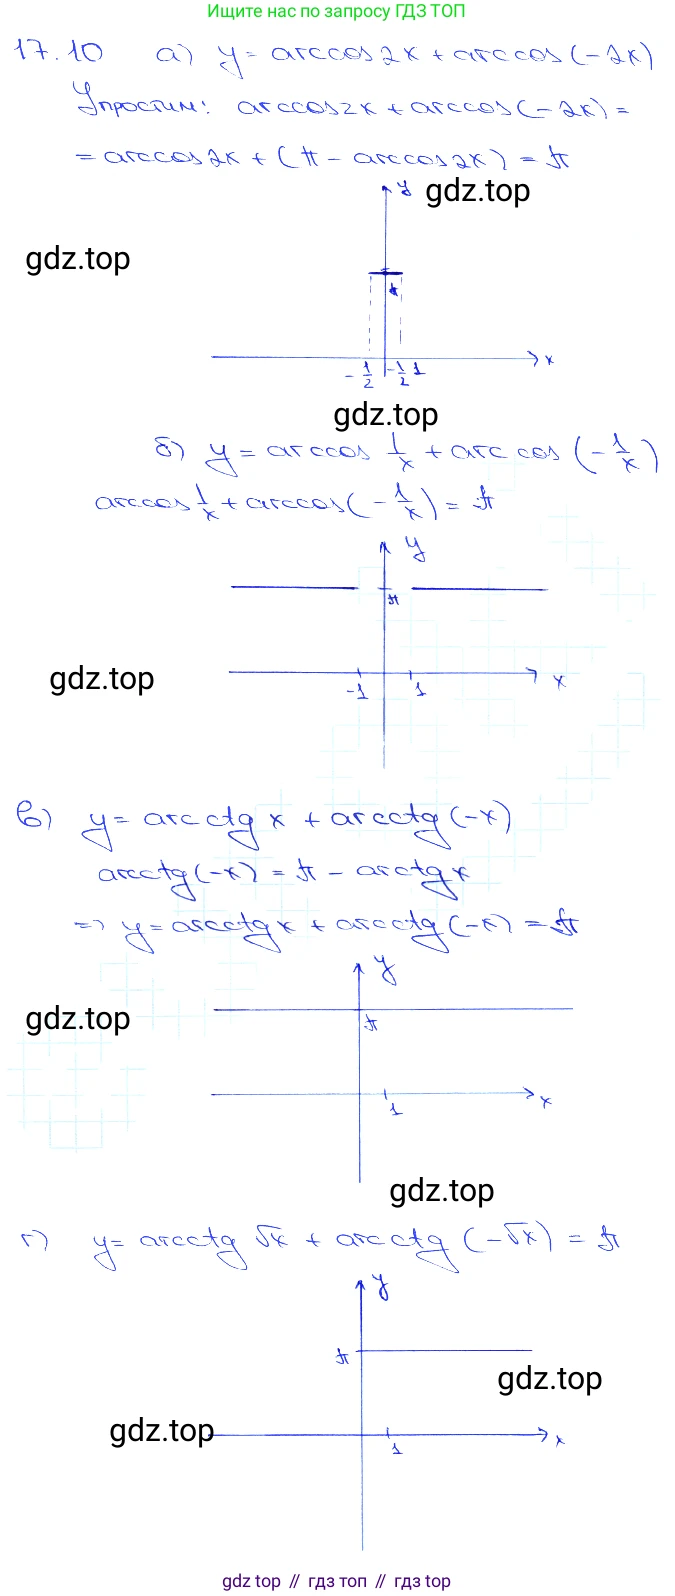 Ищите нас по запросу ГДЗ ТОП
17.10 а) y = arccos2x + arccos(-2x)
Упростим: arccos2x + arccos(-2x) =
= arccos2x + (π - arccos2x) = π
y
gdz.top
gdz.top
π
x
-1/2 -1/2 1
gdz.top
б) y = arccos 1/x + arccos (-1/x)
arccos 1/x + arccos(-1/x) = π
y
π
gdz.top
-1 1 x
в) y = arcctg x + arcctg(-x)
arcctg(-x) = π - arctgx
=> y = arcctgx + arcctg(-x) = π
y
gdz.top
π
1 x
gdz.top
г) y = arcctg √x + arcctg (-√x) = π
y
π
gdz.top
gdz.top
1 x
gdz top // гдз топ // gdz top